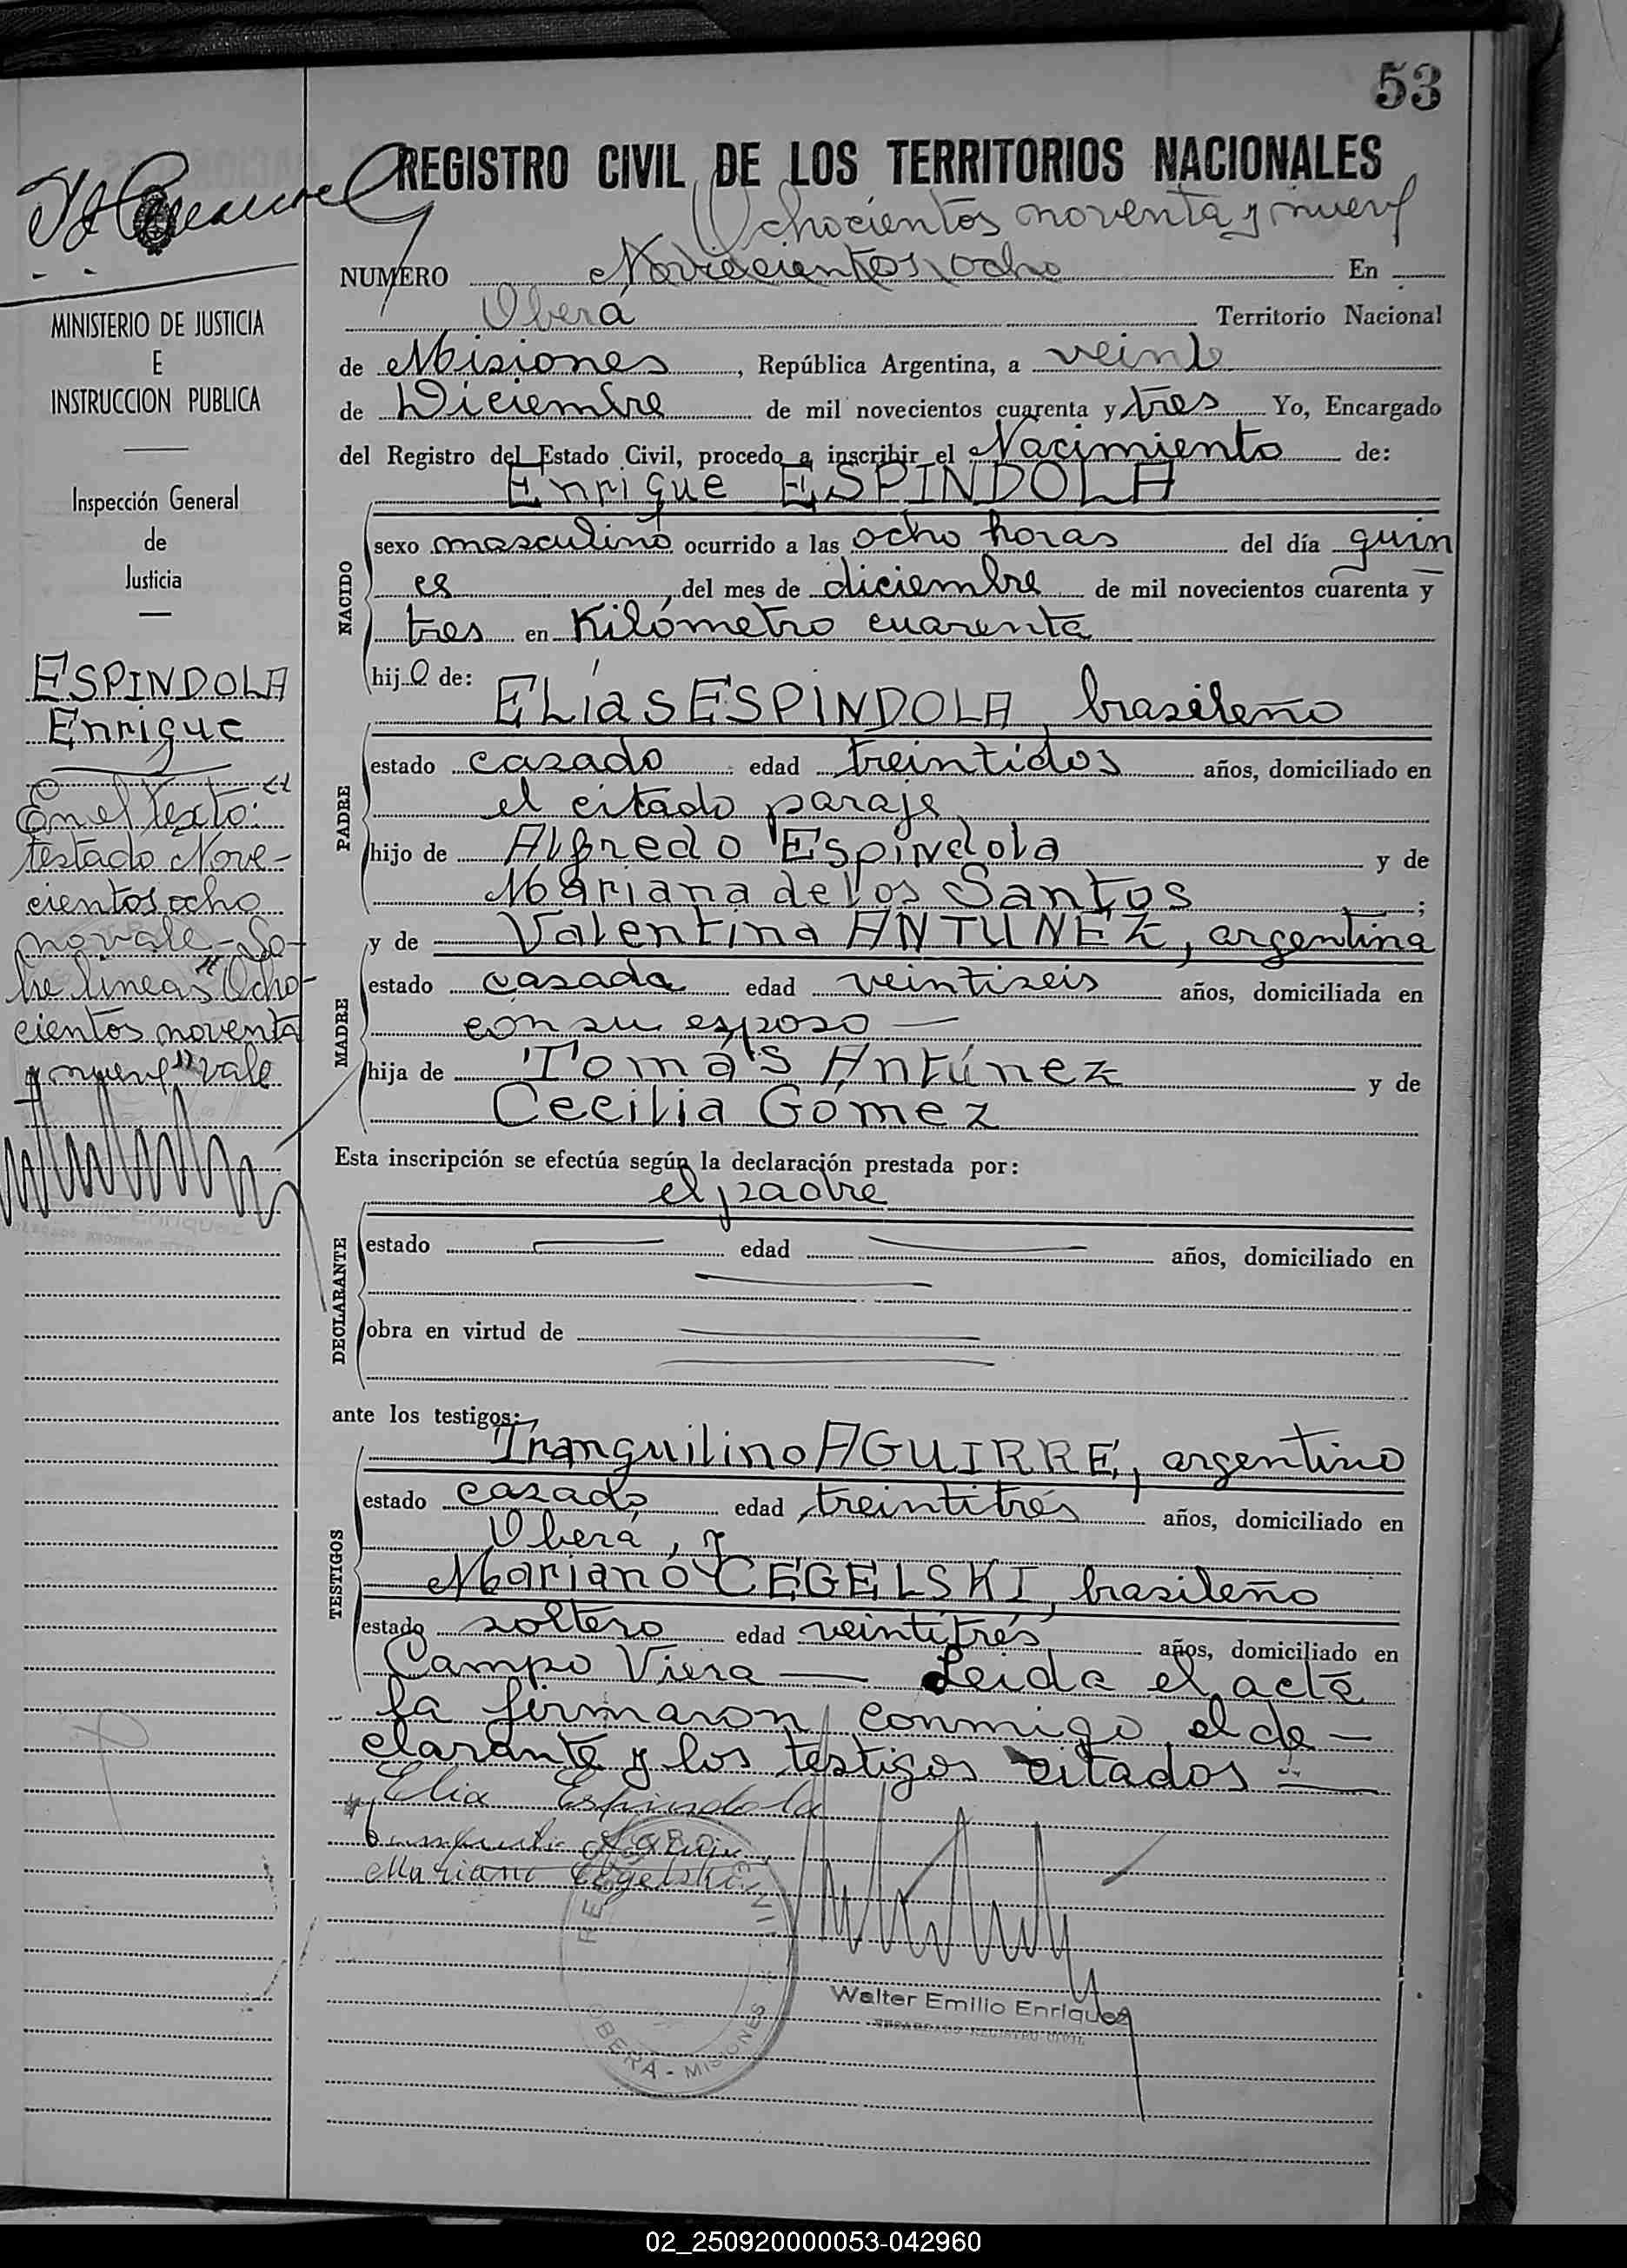 53
REGISTRO CIVIL DE LOS TERRITORIOS NACIONALES
Ochocientos noventa y nueve
NUMERO Novecientos ocho En
Oberá Territorio Nacional
de Misiones, República Argentina, a veinte
de Diciembre de mil novecientos cuarenta y tres Yo, Encargado
del Registro del Estado Civil, procedo a inscribir el Nacimiento de:
Enrique ESPINDOLA
NACIDO
sexo masculino ocurrido a las ocho horas del día quin
ce, del mes de diciembre de mil novecientos cuarenta y
tres en Kilómetro cuarenta
hijo de:
ELíAS ESPINDOLA, brasileño
PADRE
estado casado edad treintidos años, domiciliado en
el citado paraje
hijo de Alfredo Espíndola y de
Mariana de los Santos;
y de Valentina ANTUNEZ, argentina
MADRE
estado casada edad veintiseis años, domiciliada en
con su esposo —
hija de Tomás Antúnez y de
Cecilia Gómez
Esta inscripción se efectúa según la declaración prestada por:
el padre
DECLARANTE
estado edad años, domiciliado en
obra en virtud de
ante los testigos:
Tranquilino AGUIRRE, argentino
TESTIGOS
estado casado edad treintitrés años, domiciliado en
Oberá, y
Mariano CEGELSKI, brasileño
estado soltero edad veintitrés años, domiciliado en
Campo Viera — Leida el acta
la firmaron conmigo el de-
clarante y los testigos citados —
Elia Espindola
Mariano Cegelski
REGISTRO CIVIL
OBERA - MISIONES
Walter Emilio Enriquez
ENCARGADO REGISTRO CIVIL
MINISTERIO DE JUSTICIA
E
INSTRUCCION PUBLICA
Inspección General
de
Justicia
ESPINDOLA
Enrique
En el texto: "
testado Nove-
cientos ocho
no vale - So-
bre lineas "Ocho-
cientos noventa
y nueve" vale
02_250920000053-042960